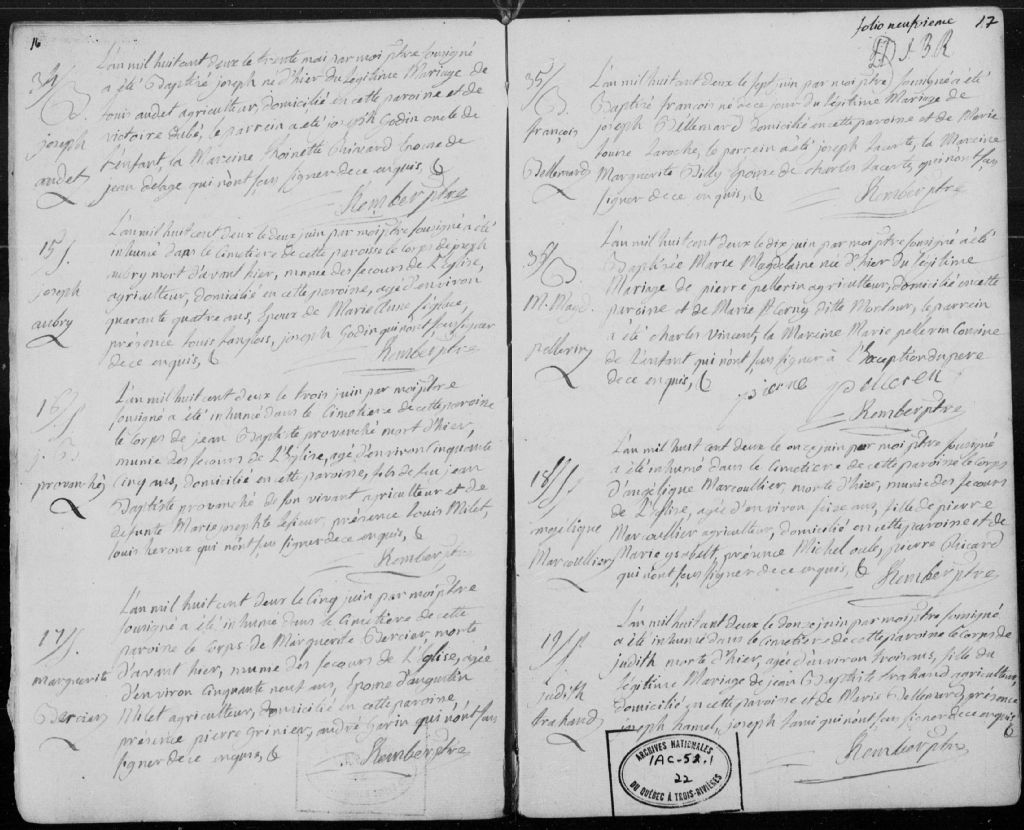 16
34
B.
joseph
audet
L'an mil huit cent deux le trente mai par moi ptre soussigné
a été Baptisé joseph né d'hier du légitime Mariage de
louis audet agriculteur domicilié en cette paroisse et de
victoire dubé, le parrein a été joseph Godin oncle de
l'enfant, la Mareine Thoinette Chinard Epouse de
jean delage qui n'ont sçu signer de ce enquis,
Komber ptre
15 S.
joseph
aubry
L'an mil huit cent deux le deux juin par moi ptre soussigné a été
inhumé dans le Cimetiere de cette paroisse le Corps de joseph
aubry mort d'avant hier, munie des secours de L'Eglise,
agriculteur, domicilié en cette paroisse, agé d'environ
quarante quatre ans, Epoux de Marie Anne
présence louis langlois, joseph Godin qui n'ont sçu signer
de ce enquis,
Komber ptre
16 S.
j. B.
provanché
L'an mil huit cent deux le trois juin par moi ptre
soussigné a été inhumé dans le Cimetiere de cette paroisse
le Corps de jean Baptiste provanché mort d'hier,
munie des secours de L'Eglise, agé d'environ Cinquante
Cinq ans, domicilié en cette paroisse, fils de feu jean
Baptiste provanché de son vivant agriculteur et de
defunte Marie josephte lesieur, présence louis Milet,
louis heroux qui n'ont sçu signer de ce enquis,
Komber ptre
17 S.
marguerite
Bercier
L'an mil huit cent deux le Cinq juin par moi ptre
soussigné a été inhumé dans le Cimetiere de cette
paroisse le Corps de Marguerite Bercier, morte
d'avant hier, munie des secours de L'Eglise, agée
d'environ Cinquante neuf ans, Epouse d'augustin
Milet agriculteur, domicilié en cette paroisse,
présence pierre Grinier, andré Gerin qui n'ont sçu
signer de ce enquis,
Komber ptre
folio neufvieme 17
J B R
35
B.
françois
Bellemard
L'an mil huit cent deux le sept juin par moi ptre soussigné a été
Baptisé françois né de ce jour du légitime Mariage de
joseph Bellemard domicilié en cette paroisse et de Marie
louise Laroche, le parrein a été joseph Lacerte, la Mareine
Marguerite Billy Epouse de charles Lacerte, qui n'ont sçu
signer de ce enquis,
Komber ptre
36
B
M. Magd.
pellerin
L'an mil huit cent deux le dix juin par moi ptre soussigné a été
Baptisée Marie Magdelaine née d'hier du légitime
Mariage de pierre pellerin agriculteur, domicilié en cette
paroisse et de Marie ditte le parrein
a été charles Vincent, la Mareine Marie pellerin Cousine
de L'enfant qui n'ont sçu signer à L'Exception du pere
de ce enquis,
pierre pellerin
Komber ptre
18 S.
angelique
Marcoullier
L'an mil huit cent deux le onze juin par moi ptre soussigné
a été inhumé dans le Cimetiere de cette paroisse le Corps
d'angélique Marcoullier, morte d'hier, munie des secours
de L'Eglise, agée d'environ seize ans, fille de pierre
Marcoullier agriculteur, domicilié en cette paroisse et de
Marie présence Michel pierre Ricard
qui n'ont sçu signer de ce enquis,
Komber ptre
19 S.
judith
trahand
L'an mil huit cent deux le douze juin par moi ptre soussigné
a été inhumé dans le Cimetiere de cette paroisse le Corps de
judith morte d'hier, agée d'environ trois ans, fille du
légitime Mariage de jean Baptiste trahand agriculteur,
domicilié en cette paroisse et de Marie Bellemard, présence
joseph hamel, joseph lami qui n'ont sçu signer de ce enquis
Komber ptre
ARCHIVES NATIONALES
1AC-52.1
22
DU QUÉBEC À TROIS-RIVIÈRES